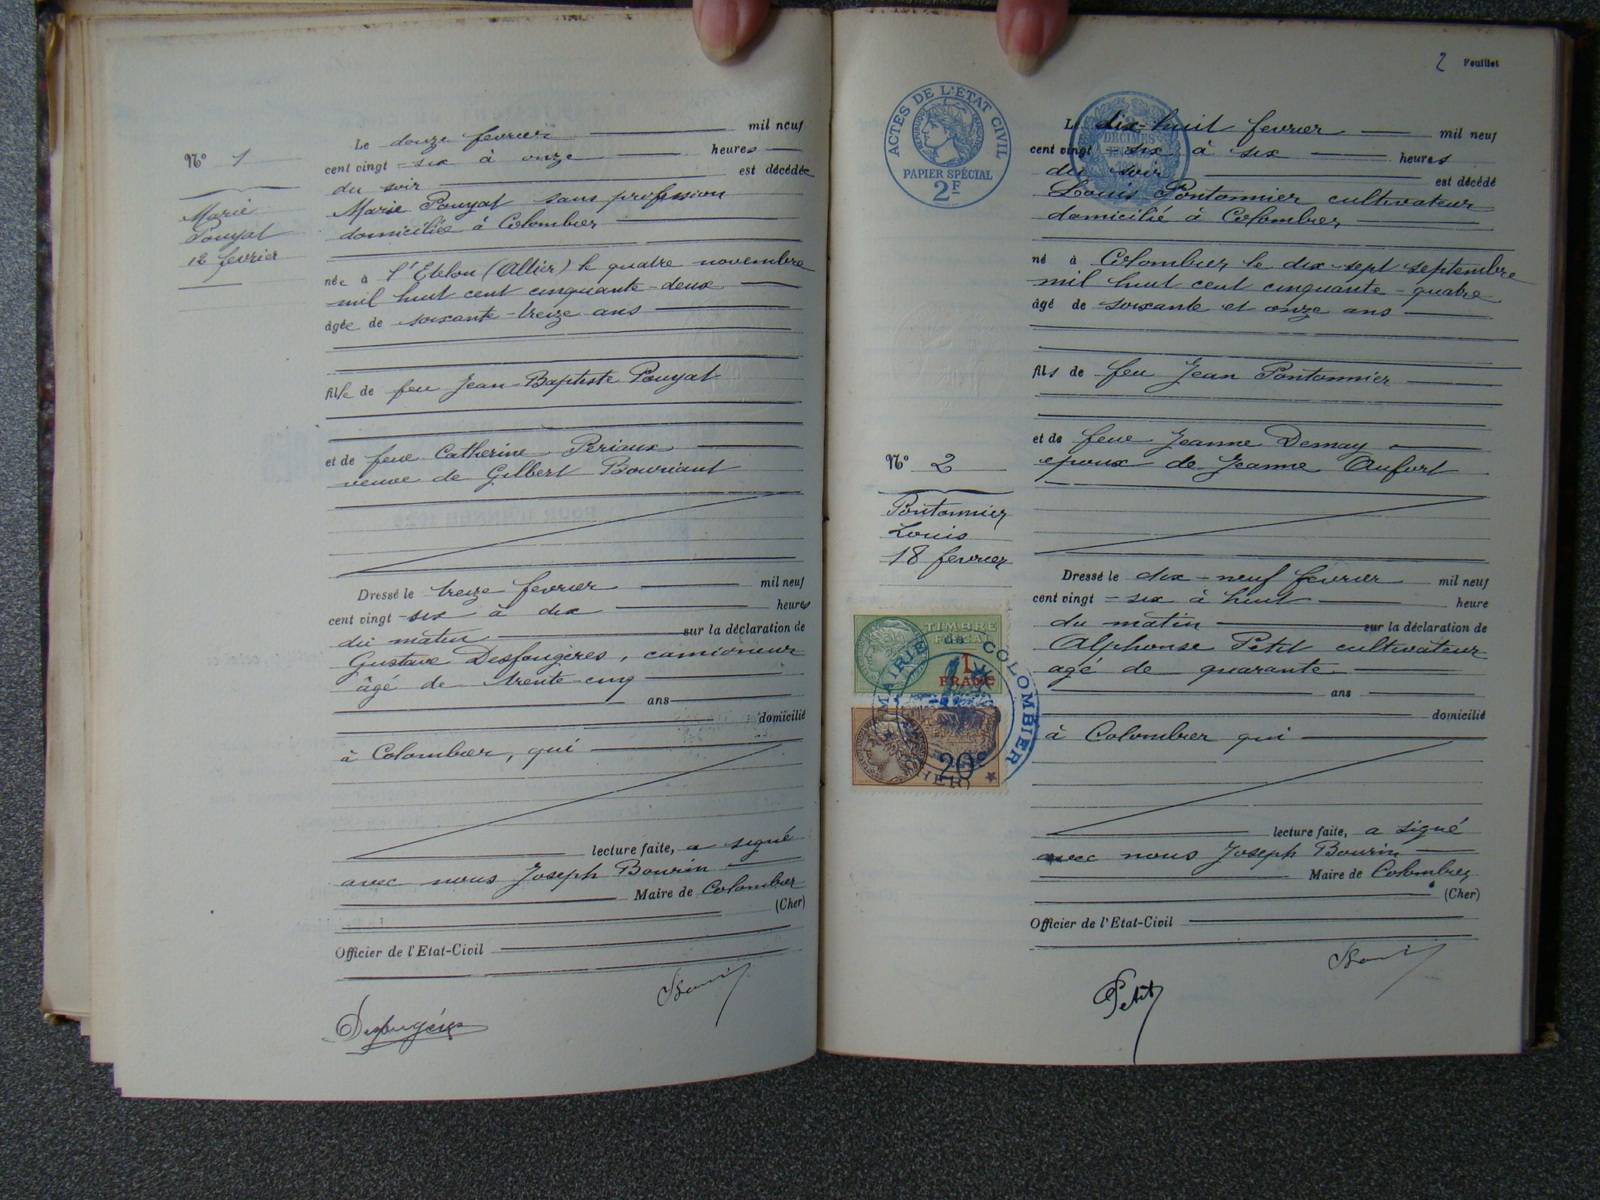 N° 1
Marie
Pouyat
12 fevrier
Le douze fevrier mil neuf
cent vingt-six à onze heures
du soir est décédée
Marie Pouyat sans profession
domiciliée à Colombier
née à l'Etelon (Allier) le quatre novembre
mil huit cent cinquante-deux
âgée de soixante-treize ans
fille de feu Jean-Baptiste Pouyat
et de feue Catherine Periaux
veuve de Gilbert Bouriant
Dressé le treize fevrier mil neuf
cent vingt-six à dix heures
du matin sur la déclaration de
Gustave Desfougères, camioneur
âgé de trente-cinq
ans
domicilié
à Colombier, qui
lecture faite, a signé
avec nous Joseph Bourin
Maire de Colombier
(Cher)
Officier de l'Etat-Civil
Desfougères
2 Feuillet
ACTES DE L'ÉTAT CIVIL
PAPIER SPÉCIAL
2F
DÉCIMES
Le dix-huit fevrier mil neuf
cent vingt-six à six heures
du soir est décédé
Louis Pontonnier cultivateur
domicilié à Colombier
né à Colombier le dix-sept septembre
mil huit cent cinquante-quatre
âgé de soixante et onze ans
fils de feu Jean Pontonnier
et de feue Jeanne Demay
epoux de Jeanne Aufort
N° 2
Pontonnier
Louis
18 fevrier
TIMBRE
FISCAL
1
FRANC
MAIRIE de COLOMBIER
20c
(CHER)
Dressé le dix-neuf fevrier mil neuf
cent vingt-six à huit heure
du matin sur la déclaration de
Alphonse Petit cultivateur
agé de quarante
ans
domicilié
à Colombier qui
lecture faite, a signé
avec nous Joseph Bourin
Maire de Colombier
(Cher)
Officier de l'Etat-Civil
Petit